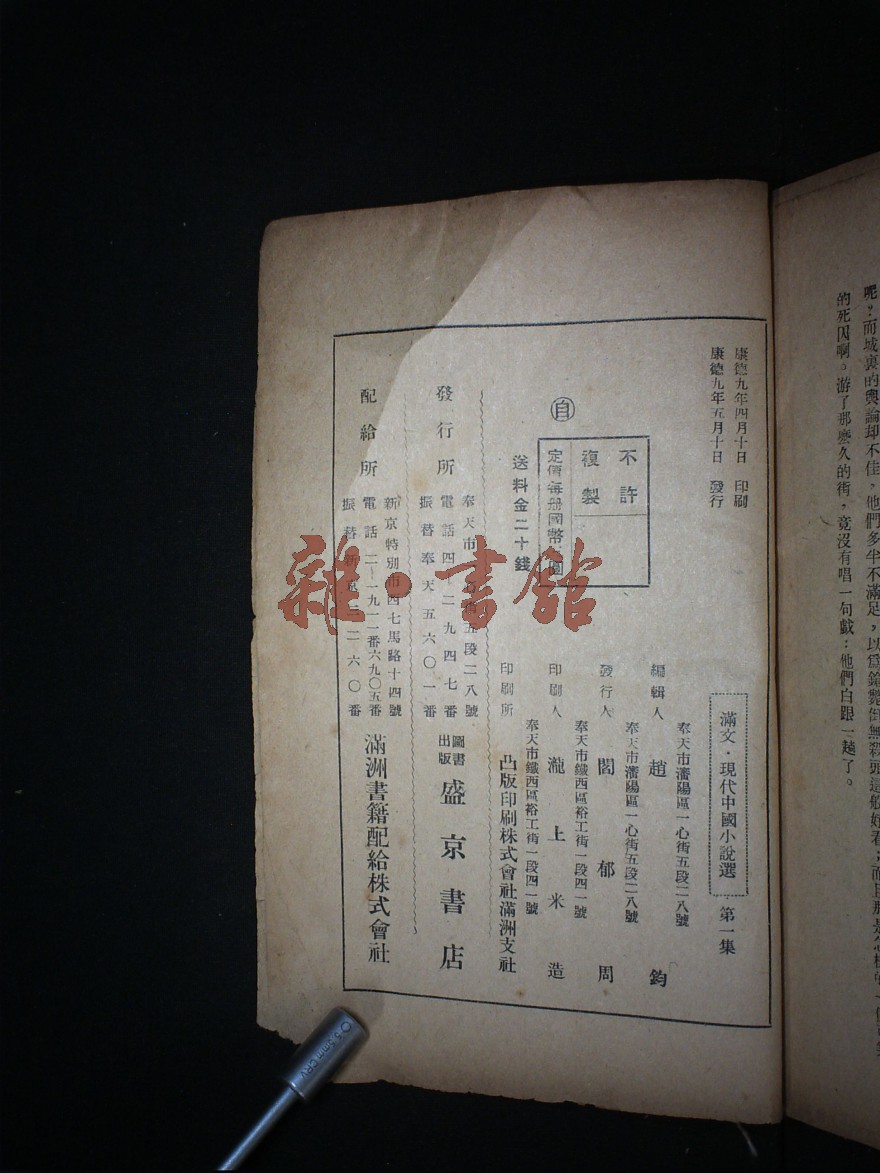 呢？而城裏的輿論却不佳，他們多半不滿足，以爲鎗斃倒無殺頭這般好看；而且那是怎樣的一個可笑
的死囚啊。游了那麽久的街，竟沒有唱一句戲：他們白跟一趟了。
康德九年四月十日 印刷
康德九年五月十日 發行
滿文・現代中國小說選 第一集
不許
複製
定價每册國幣 圓
自
送料金二十錢
奉天市瀋陽區一心街五段二八號
編輯人 趙鈞
奉天市瀋陽區一心街五段二八號
發行人 閻郁周
奉天市鐵西區裕工街一段四一號
印刷人 瀧上米造
奉天市鐵西區裕工街一段四一號
印刷所 凸版印刷株式會社滿洲支社
發行所
奉天市 街五段二八號
電話四・二九四七番
振替奉天五六〇一番
圖書出版 盛京書店
配給所
新京特別市四七馬路十四號
電話 二・一九一二番六九〇五番
振替 二六〇番
滿洲書籍配給株式會社
雜・書館